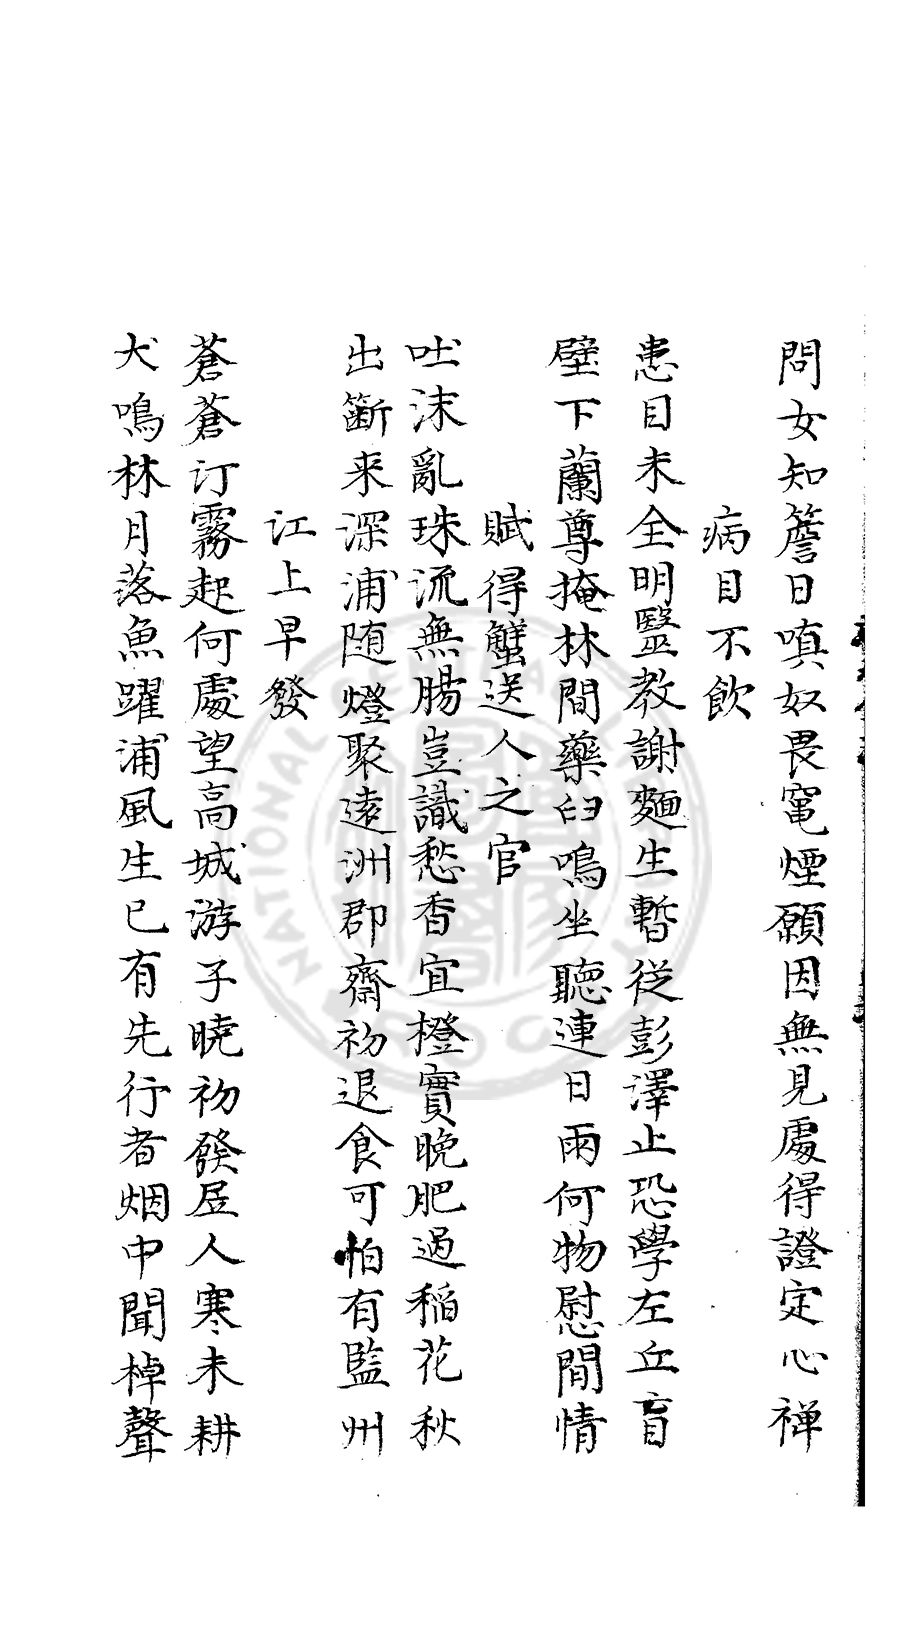 問女知簷日嗔奴畏竃煙願因無見處得證定心禅
病目不飲
患目未全明毉教謝麵生暫從彭澤止恐學左丘盲
壁下蘭尊掩林間藥臼鳴坐聽連日雨何物慰閒情
賦得蟹送人之官
吐沫亂珠流無腸豈識愁香宜橙實晚肥過稲花秋
出籪来深浦随燈聚遠洲郡齋初退食可怕有監州
江上早發
蒼蒼汀霧起何處望高城游子曉初發居人寒未耕
犬鳴林月落魚躍浦風生已有先行者烟中聞棹聲
NATIONAL CENTRAL LIBRARY